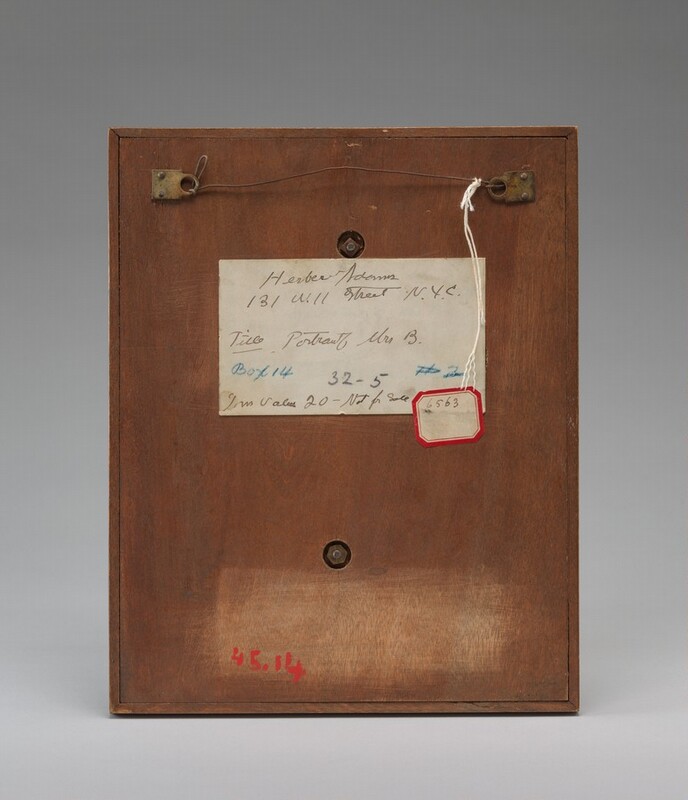 Herbert Adams
131 W. 11 Street N.Y.C.
Title Portrait of Mrs B.
Box 14
32-5
Ins Value 20 - Not for Sale
6563
45.14